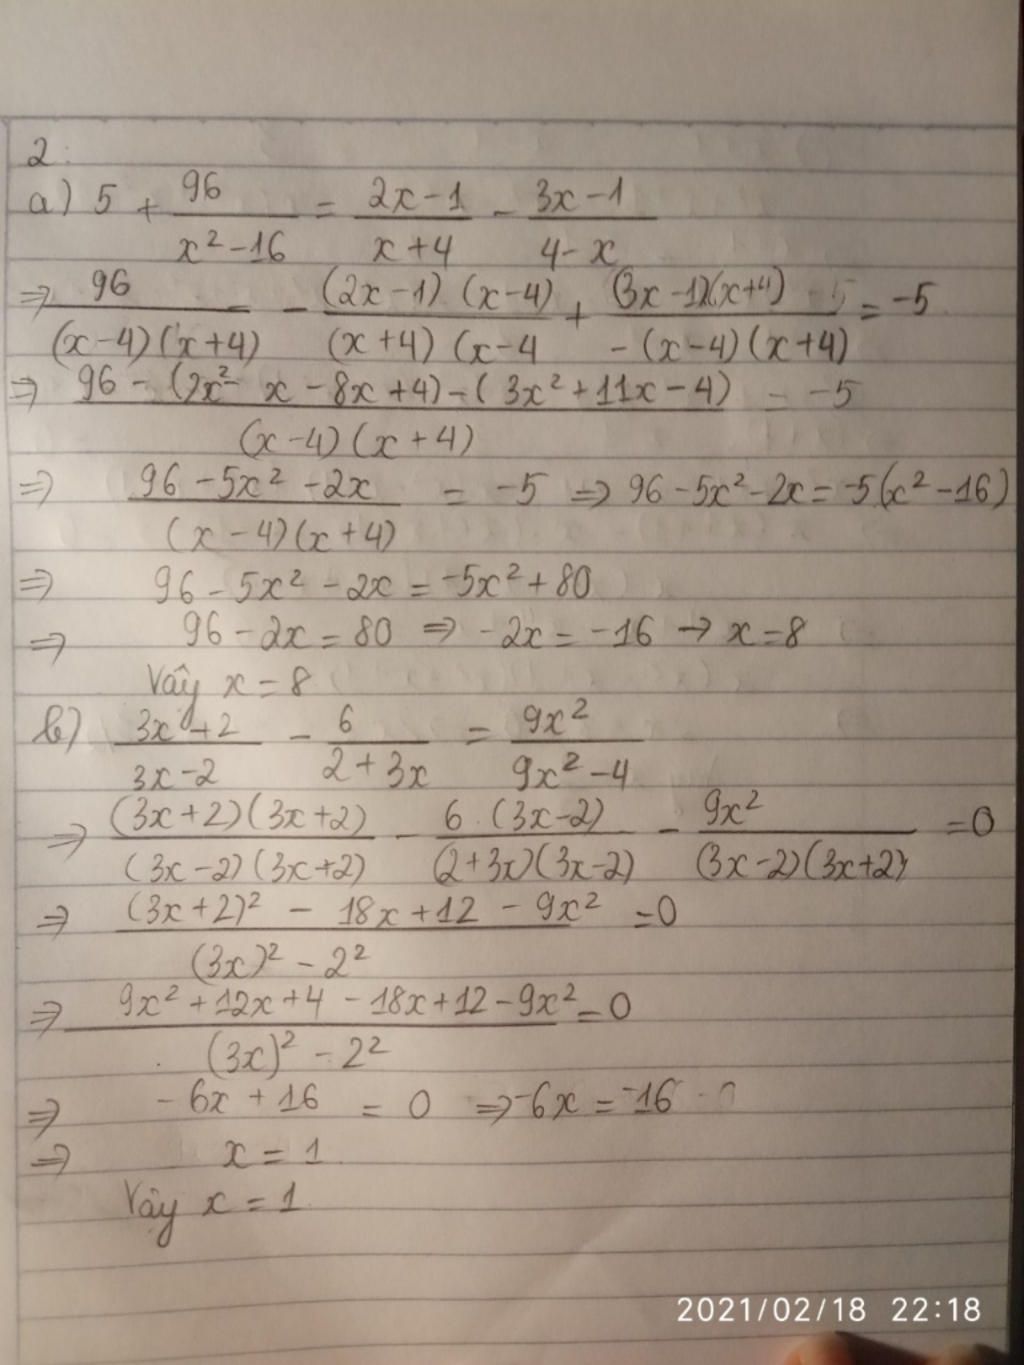 2.
a) 5 + 96/(x² - 16) = (2x - 1)/(x + 4) - (3x - 1)/(4 - x)
⇒ 96/((x - 4)(x + 4)) - ((2x - 1).(x - 4))/((x + 4)(x - 4) + ((3x - 1)(x + 4))/(-(x - 4)(x + 4)) = -5
⇒ (96 - (2x² - x - 8x + 4) - (3x² + 11x - 4))/((x - 4)(x + 4)) = -5
⇒ (96 - 5x² - 2x)/((x - 4)(x + 4)) = -5 ⇒ 96 - 5x² - 2x = -5(x² - 16)
⇒ 96 - 5x² - 2x = -5x² + 80
⇒ 96 - 2x = 80 ⇒ -2x = -16 → x = 8
Vậy x = 8
b) (3x + 2)/(3x - 2) - 6/(2 + 3x) = 9x²/(9x² - 4)
⇒ ((3x + 2)(3x + 2))/((3x - 2)(3x + 2)) - (6.(3x - 2))/((2 + 3x)(3x - 2)) - 9x²/((3x - 2)(3x + 2)) = 0
⇒ ((3x + 2)² - 18x + 12 - 9x²)/((3x)² - 2²) = 0
⇒ (9x² + 12x + 4 - 18x + 12 - 9x²)/((3x)² - 2²) = 0
⇒ -6x + 16 = 0 ⇒ -6x = -16
⇒ x = 1
Vậy x = 1
2021/02/18 22:18